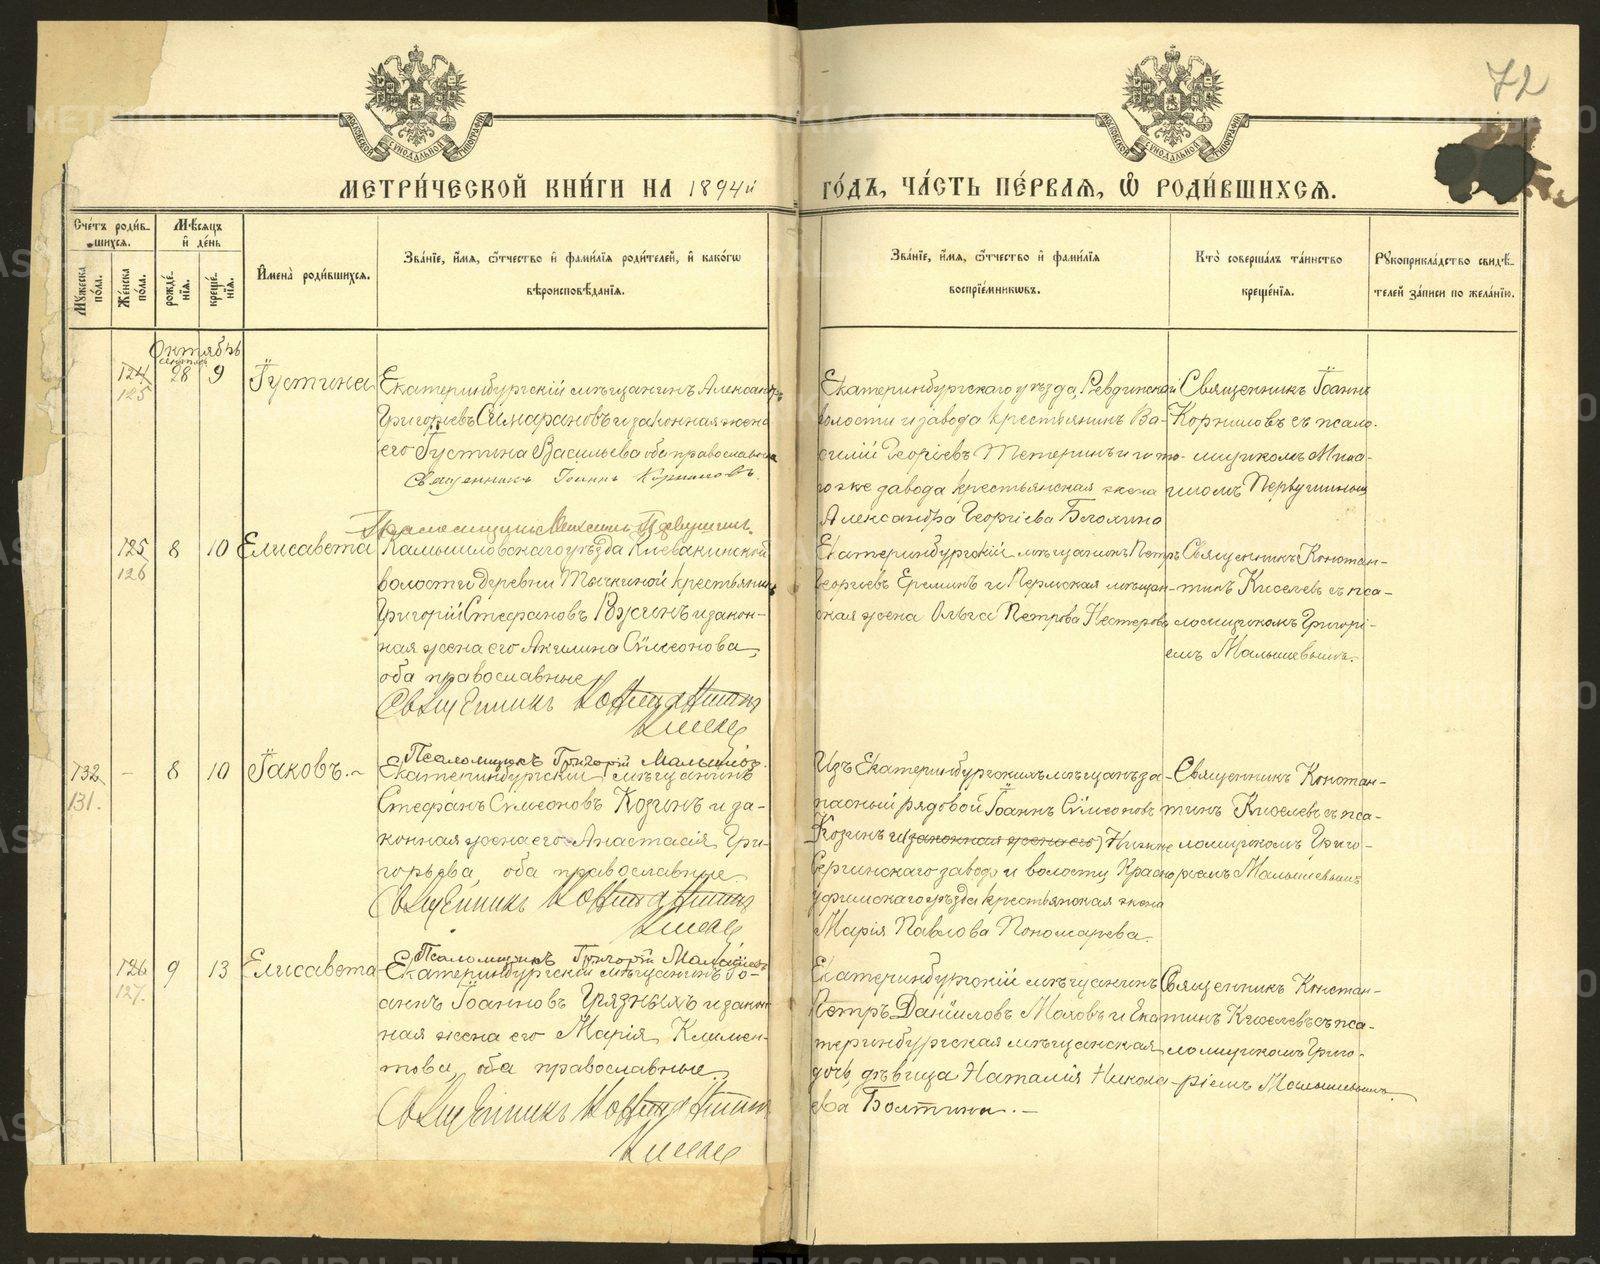 72
МЕТРИ́ЧЕСКОЙ КНИ́ГИ НА 1894й ГО́ДЪ, ЧА́СТЬ ПЕ́РВАЯ, Ѽ РОДИ́ВШИХСЯ.
Сче́тъ роди́в-
шихся.
Му́жеска по́ла.
Же́нска по́ла.
Мѣ́сяцъ
и҆ де́нь
рожде́-
нія.
креще́-
нія.
И҆мена̀ роди́вшихся.
Зва́ніе, и҆́мя, ѻ҆́тчество и҆ фами́лія роди́телей, и҆ како́гѡ
вѣроисповѣ́данія.
Зва́ніе, и҆́мя, ѻ҆́тчество и҆ фами́лія
воспріе́мникѡвъ.
Кто̀ соверша́лъ та́инство
креще́нія.
Рꙋкоприкла́дство свидѣ́-
телей за́писи по жела́нію.
Октябрь
124
125
28
9
Іустина
Екатеринбургскій мѣщанинъ Александръ
Григорьевъ Симарановъ и законная жена
его Іустина Васильева оба православные
Священникъ Іоаннъ Корниловъ.
Екатеринбургскаго уѣзда, Ревдинской
волости и завода крестьянинъ Ва-
силій Георгіевъ Тетеринъ и того-
же завода крестьянская жена
Александра Георгіева
Священникъ Іоаннъ
Корниловъ съ псало-
мщикомъ Миха-
иломъ Первушинымъ
Псаломщикъ Михаилъ Первушинъ.
125
126
8
10
Елисавета
Камышловскаго уѣзда Клевакинской
волости деревни крестьянинъ
Григорій Стефановъ и закон-
ная жена его Акилина Сѵмеонова,
оба православные
Священникъ Константинъ
Киселевъ
Екатеринбургскій мѣщанинъ Петръ
Георгіевъ Ереминъ и Пермская мѣщан-
ская жена Ольга Петрова Нестерова
Священникъ Констан-
тинъ Киселевъ съ пса-
ломщикомъ Григорі-
емъ Малышевымъ.
Псаломщикъ Григорій Малышевъ.
132
131.
-
8
10
Іаковъ.-
Екатеринбургскій мѣщанинъ
Стефанъ Сѵмеоновъ Козинъ и за-
конная жена его Анастасія Гри-
горьева, оба православные
Священникъ Константинъ
Киселевъ
Изъ Екатеринбургскихъ мѣщанъ за-
пасный рядовой Іоаннъ Сѵмеоновъ
Козинъ и (законная жена его) Нижне
Сергинскаго завода и волости, Красно-
уфимскаго уѣзда крестьянская жена
Марія Павлова Пономарева.
Священникъ Констан-
тинъ Киселевъ съ пса-
ломщикомъ Григо-
ріемъ Малышевымъ
Псаломщикъ Григорій Малышевъ
126
127.
9
13
Елисавета
Екатеринбургскій мѣщанинъ Іо-
аннъ Іоанновъ Грязныхъ и закон-
ная жена его Марія Климен-
това, оба православные.
Священникъ Константинъ
Киселевъ
Екатеринбургскій мѣщанинъ
Петръ Даніиловъ Маховъ и Ека-
теринбургская мѣщанская
дочь, дѣвица Наталія Никола-
ева Болтина.-
Священникъ Констан-
тинъ Киселевъ съ пса-
ломщикомъ Григо-
ріемъ Малышевымъ.